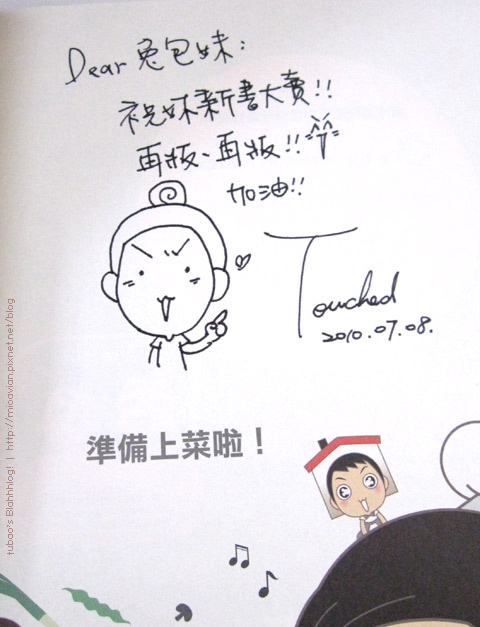 Dear 兔包妹：
祝妹新書大賣!!
再版、再版!!
加油!!
Touched
2010.07.08.
準備上菜啦！
tubao's Blahhhlog! | http://mioavian.pixnet.net/blog